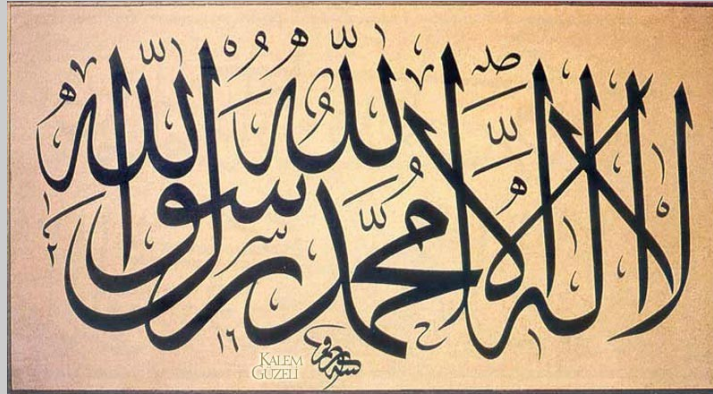 لا اله الا الله محمد رسول الله
١٢١٦
KALEM
GÜZELİ